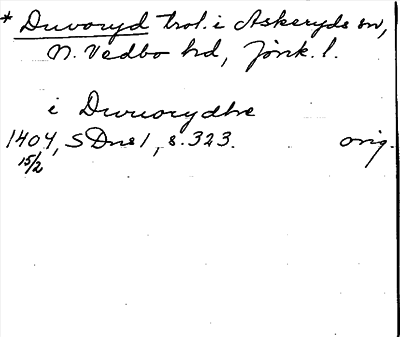 * Duvoryd trol. i Askeryds sn,
N. Vedbo hd, Jönk. l.
i Dwuorydhe
1404, SDns 1, s. 323. orig.
15/2